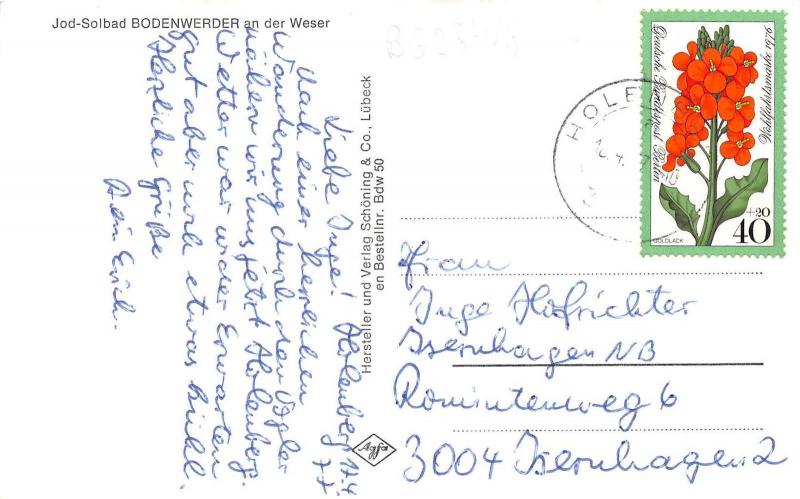 Jod-Solbad BODENWERDER an der Weser
Liebe Inge! Holenberg 17.4.
77
Nach einer herrlichen
Wanderung durch den Vogler
nähern wir uns jetzt Holenberg.
Wetter war wider Erwarten
gut aber noch etwas kühl.
Herzliche Grüße
Dein Erich.
Hersteller und Verlag Schöning & Co., Lübeck
en Bestellnr. Bdw 50
Agfa
HOLE
Deutsche Bundespost Berlin
Wohlfahrtsmarke 1976
GOLDLACK
+20
40
Frau
Inge Hofrichter
Isernhagen NB
Romintenweg 6
3004 Isernhagen 2